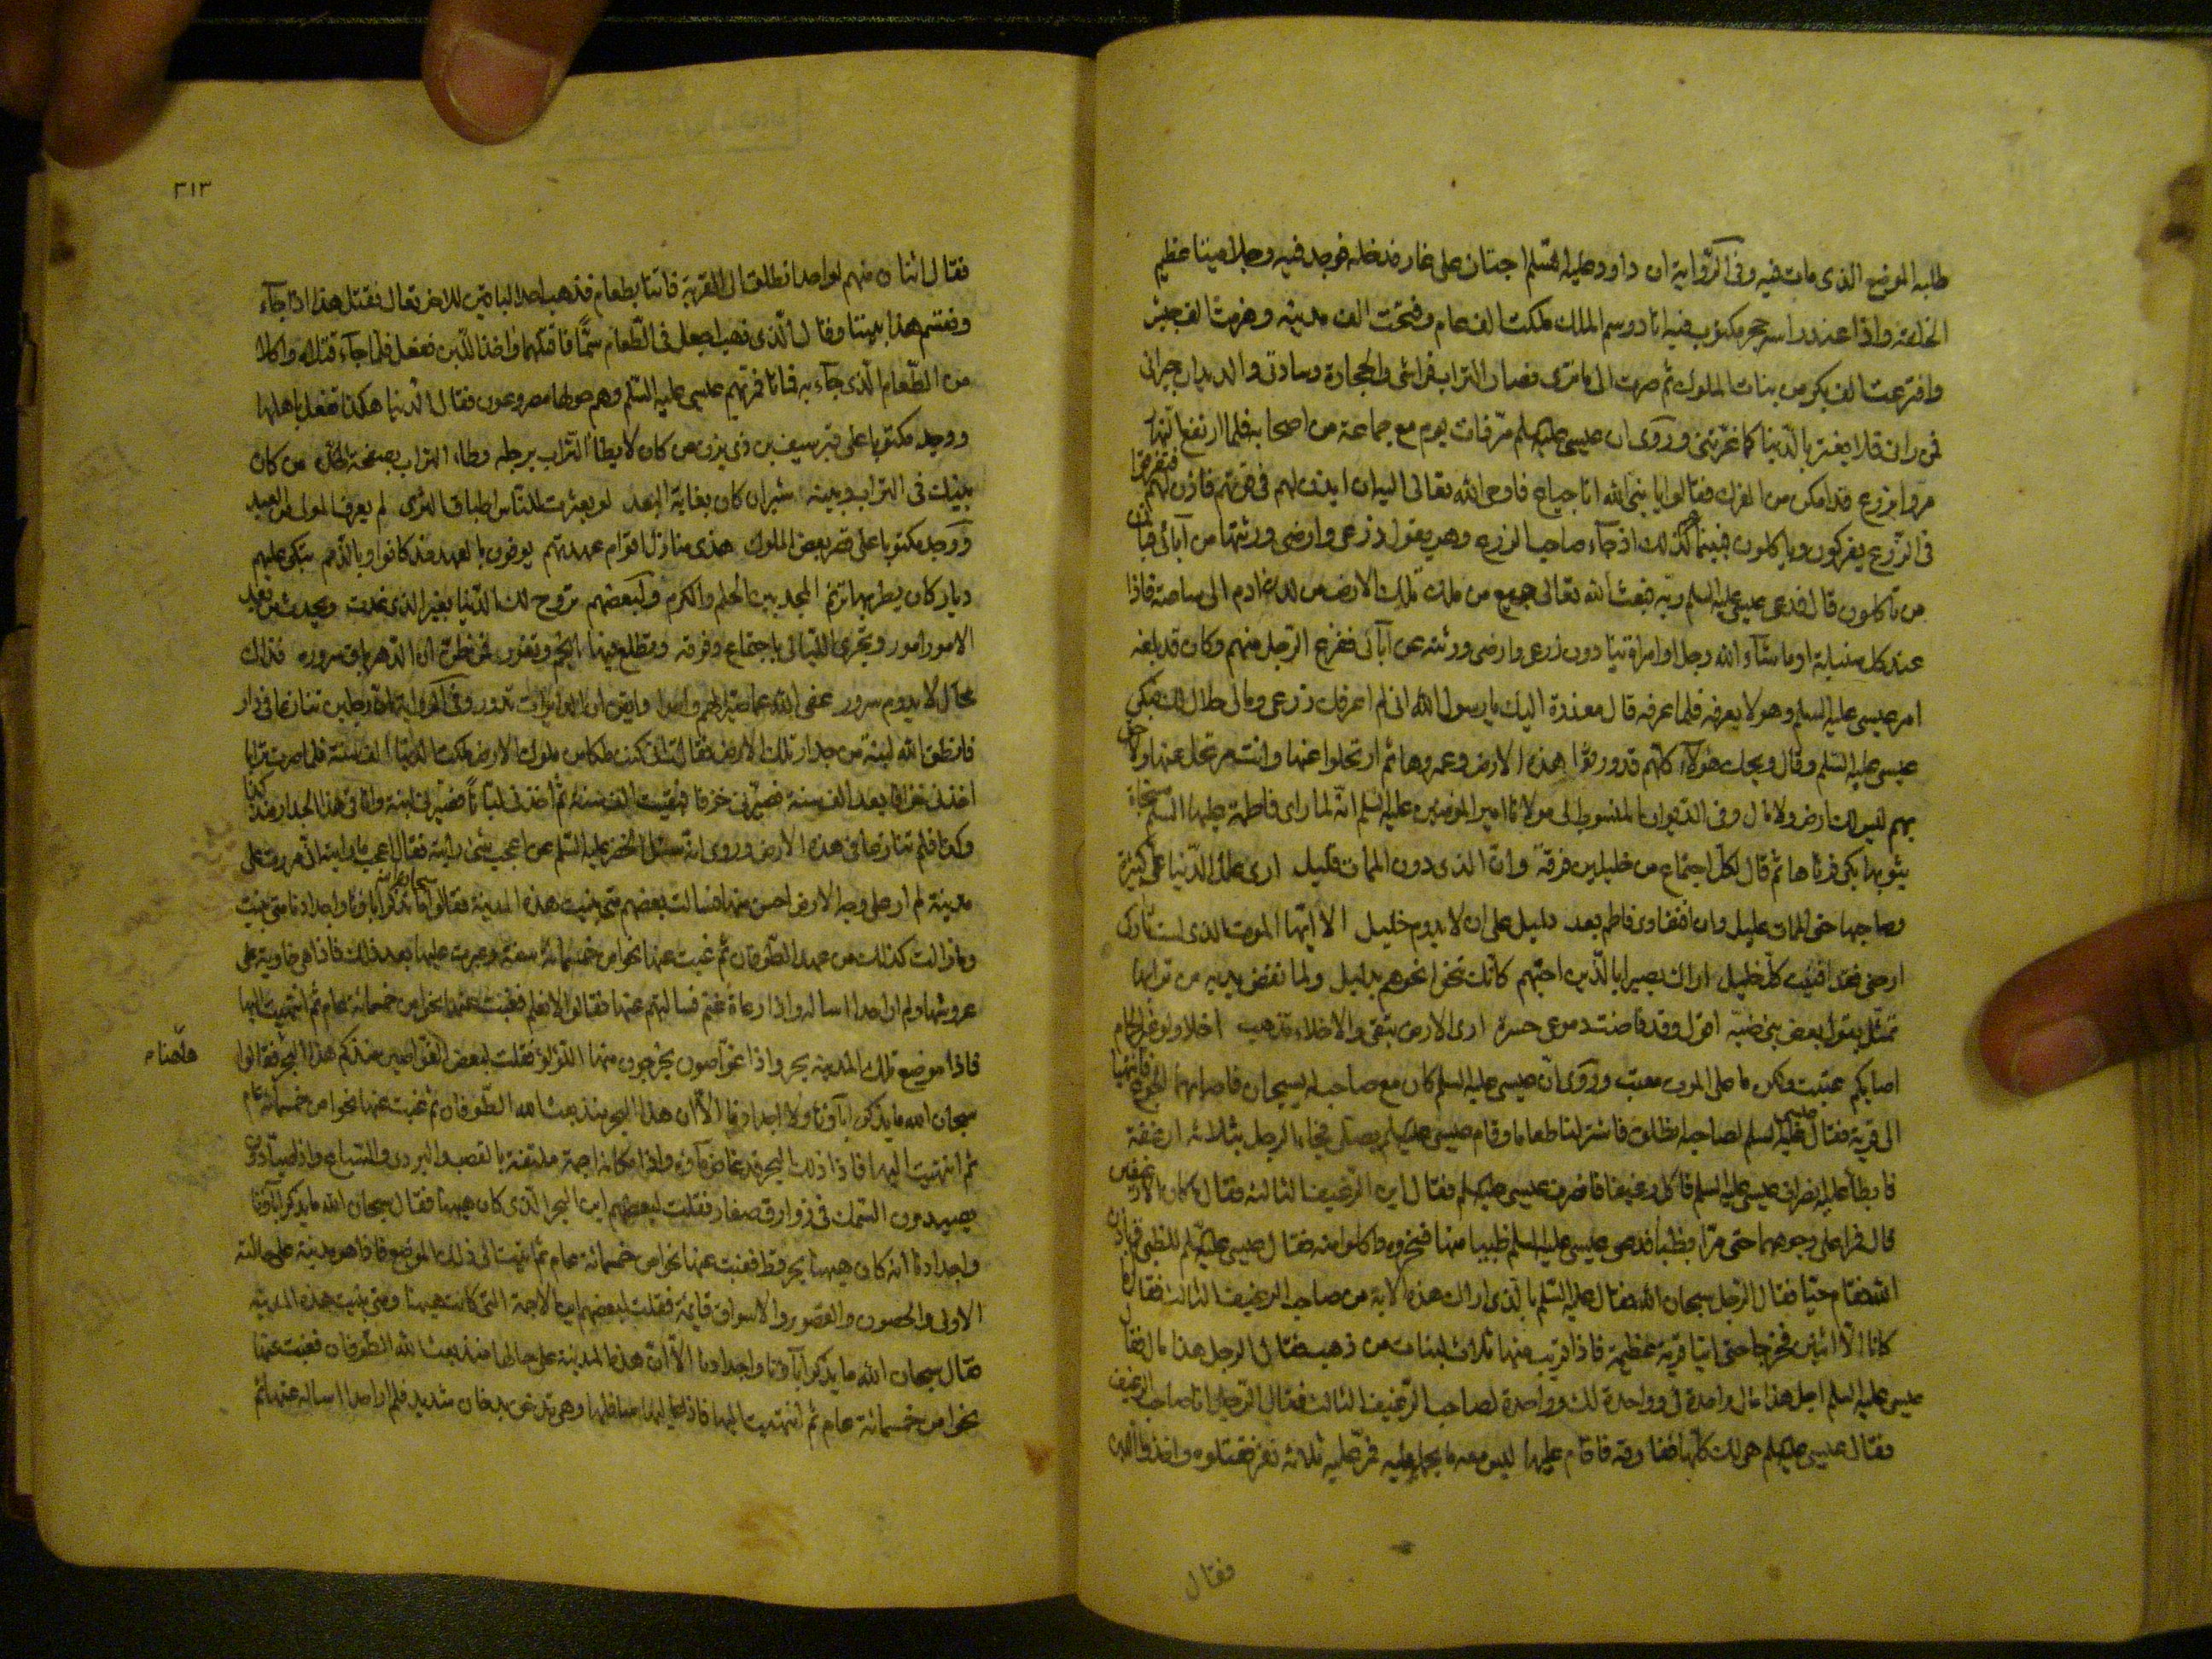 طلبه الموضع الذى مات فيه وفى الرّواية ان داود عليه السّلم اجتاز على غار فدخله فوجد فيه رجلا ميتا عظيم
الخلقة واذا عند راسه حجر مكتوب فيه انا دوسم الملك ملكت الف عام وفتحت الف مدينة وهزمت الف جيش
وافترعت الف بكر من بنات الملوك ثم صرت الى ما ترى فصار التراب فراشى والحجارة وسادتى والديدان جيرانى
فمن رانى فلا يغتر بالدّنيا كما غرّتنى وروى ان عيسى عليه السلم مرّ ذات يوم مع جماعة من اصحابه فلما ارتفع النهار
مروا بزرع قد امكن من الفرك فقالوا يا نبى الله انا جياع فاوحى الله تعالى اليه ان ايذن لهم فى قوتهم فاذن لهم فتفرقوا
فى الزّرع يفركون وياكلون فبينما هم كذلك اذ جاء صاحب الزرع وهو يقول زرعى وارضى ورثتها من آبائى فباذن
من تاكلون قال فدعى عيسى عليه السلم ربّه فبعث الله تعالى جميع من ملك تلك الارض من لدن ادم الى ساعته فاذا
عند كل سنبلة او ما شاء الله رجل او امراة ينادون زرعى وارضى ورثته عن آبائى ففزع الرجل منهم وكان قد بلغه
امر عيسى عليه السلم وهو لا يعرفه فلما عرفه قال معذرة اليك يا رسول الله انى لم اعرفك زرعى ومالى حلال لك فبكى
عيسى عليه السّلم وقال ويحك هؤلاء كلّهم قد ورثوا هذه الارض وعمروها ثم ارتحلوا عنها وانت مرتحل عنها ولاحق
بهم ليس لك ارض ولا مال وفى الديوان المنسوب الى مولانا امير المؤمنين عليه السلم انّه لما راى فاطمة عليها السلم مسجاة
بثوبها بكى فرثاها ثم قال لكل اجتماع من خليلين فرقة وانّ الذى دون الممات قليل ارى علل الدّنيا علىّ كثيرة
وصاحبها حتى الممات عليل وان افتقادى فاطم بعد دليل على ان لا يدوم خليل الا ايّها الموت الذى ليس تاركى
ارحنى فقد افنيت كلّ خليل اراك بصيرا بالّذين احبّهم كانّك تنحو نحوهم بدليل ولما نفض يديه من ترابها
تمثّل بقول بعض بنى ضبّه اقول وقد فاضت دموعى حسرة ارى الارض تبقى والاخلاء تذهب اخلاى لو غير الحمام
اصابكم عتبت ولكن ما على الموت معتب وروى انّ عيسى عليه السلم كان مع صاحب له يسيحان فاصابهما الجوع فانتهيا
الى قرية فقال عيسى عليه السلم لصاحبه انطلق فاشتر لنا طعاما وقام عيسى عليه السلم يصلّى فجاء الرجل بثلاثة ارغفة
فابطا عليه انصراف عيسى عليه السلم فاكل رغيفا فانصرف عيسى عليه السلم فقال اين الرّغيف الثالث فقال ما كان الا رغيفان
قال فمرا على وجوههما حتى مرّا بظباء فدعى عيسى عليه السلم ظبيا منها فنحروه واكلوا منه فقال عيسى عليه السّلم للظبى قم باذن
الله فقام حيّا فقال الرّجل سبحان الله فقال عليه السّلم بالذى اراك هذه الاية من صاحب الرغيف الثالث فقال ما
كانا الّا اثنين فخرجا حتى اتيا قرية عظيمة فاذا قريب منها ثلاث لبنات من ذهب فقال الرجل هذا مال فقال
عيسى عليه السلم اجل هذا مال واحدة لى وواحدة لك وواحدة لصاحب الرّغيف الثالث فقال الرّجل انا صاحب الرغيف
فقال عيسى عليه السلم هى لك كلّها ففارقه فاقام عليها ليس معه ما يحملها عليه فمرّ عليه ثلاثة نفر فقتلوه واخذوا اللبن
فقال
٣١٣
فقال اثنان منهم لواحد انطلق الى القرية فاتنا بطعام فذهب احد الباقين للاخر تعال فقتل هذا اذا جاء
ونقسم هذا بيننا وقال الّذى ذهب اجعل فى الطّعام سمًّا فاقتلهما واخذ اللّبن ففعل فلمّا جاء قتلاه واكلا
من الطّعام الّذى جاء به فماتا فمرّ بهم عيسى عليه السّلم وهم حولها مصروعون فقال الدّنيا هكذا تفعل باهلها
ووجد مكتوبا على قبر سيف بن ذى يزن من كان لا يطا التّراب برجله وطا التراب بصفحة الخدّ من كان
بينك فى التراب وبينه شبران كان بغاية البعد لو بعثرت للنّاس اطباق الثرى لم يعرف المولى من العبد
ووجد مكتوبا على قصر بعض الملوك هذى منازل اقوام عهدتهم يوفون بالعهد مذ كانوا وبالذّمم تبكى عليهم
ديار كان يطربها ترنّم المجد بين الحلم والكرم ولبعضهم تروح لك الدّنيا بغير الذى غدت ويحدث من بعد
الامور امور وتجرى اللّيالى باجتماع وفرقة وتطلع فيها انجم وتغور فمن ظنّ ان الدّهر باق سروره فذاك
محال لا يدوم سرور عفى الله عمّا صيّر الهمّ واحدا وايقن ان الدائرات تدور وفى الرواية انّ رجلين تنازعا فى دار
فانطق الله لبنة من جدار تلك الارض فقالت انى كنت ملكا من ملوك الارض ملكت الدّنيا الف سنة فلما صرت ترابا
اخذنى خزاف بعد الف سنة فصيّرنى خزفا فبقيت الف سنة ثم اخذنى لبّانا فصيّرنى لبنة وانا فى هذا الجدار منذ كذا
وكذا فلم تنازعا فى هذه الارض وروى انّه سئل الخضر عليه السّلم عن اعجب شئ رايته فقال اعجب ما رايته انّى مررت على
مدينة لم ار على وجه الارض احسن منها فسالت بعضهم متى بنيت هذه المدينة فقالوا سبحان الله ما يذكر اباؤنا واجدادنا متى بنيت
وما زالت كذلك من عهد الطّوفان ثم غبت عنها نحوا من خمسمائة سنة وعبرت عليها بعد ذلك فاذا هى خاوية على
عروشها ولم ار احدا اساله واذا رعاة غنم فسالتهم عنها فقالوا لا نعلم فغبت عنها نحوا من خمسمائة عام ثم انتهيت اليها
فاذا موضع تلك المدينة بحر واذا غوّاصون يخرجون منها اللّؤلؤ فقلت لبعض الغوّاصين منذ كم هذا البحر فقالوا
هاهنا م
سبحان الله ما يذكر اباؤنا ولا اجدادنا الّا ان هذا البحر منذ بعث الله الطّوفان ثم غبت عنها نحوا من خمسمائة عام
ثم انتهيت اليها فاذا ذلك البحر قد غاض ماؤه واذا مكانه اجمة ملتفّة بالقصب والبردى والسّباع واذا صيّادون
يصيدون السّمك فى زوارق صغار فقلت لبعضهم اين البحر الّذى كان هيهنا فقال سبحان الله ما يذكر اباؤنا
واجدادنا انه كان هيهنا بحر قط فغبت عنها نحوا من خمسمائة عام ثم اتيت الى ذلك الموضع فاذا هو مدينة على حالته
الاولى والحصون والقصور والاسواق قايمة فقلت لبعضهم اين الاجمة الّتى كانت هيهنا ومتى بنيت هذه المدينة
فقال سبحان الله ما يذكر اباؤنا واجدادنا الّا انّ هذه المدينة على حالها منذ بعث الله الطّوفان فغبت عنها
نحوا من خمسمائة عام ثم انتهيت اليها فاذا عاليها سافلها وهى تدخن بدخان شديد فلم ار احدا اساله عنها ثم